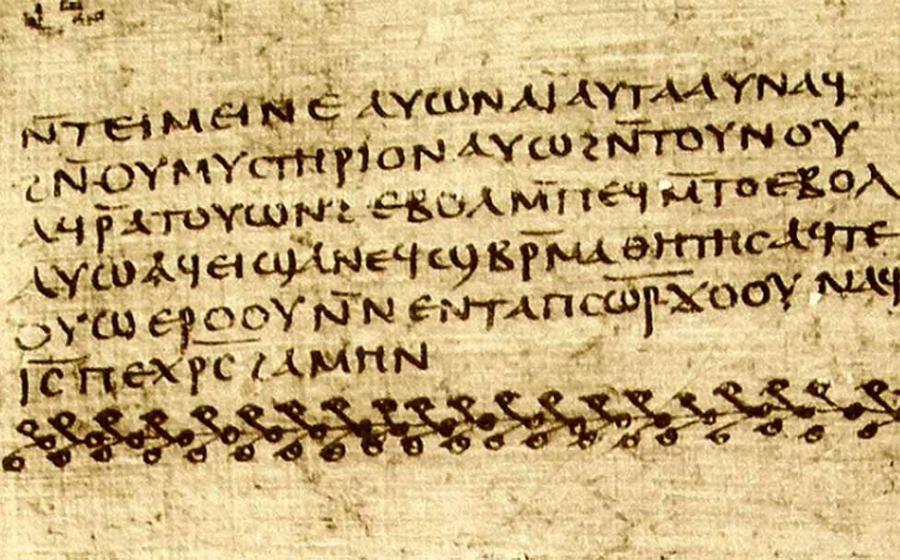 ⲛ̅ⲧⲉⲓⲙⲉⲓⲛⲉ ⲁⲩⲱ ⲛⲁⲓ ⲁⲩⲧⲁⲁⲩ ⲛⲁϥ
ϩⲛ̅ ⲟⲩⲙⲩⲥⲧⲏⲣⲓⲟⲛ ⲁⲩⲱ ϩⲛ̅ⲧⲟⲩⲛⲟⲩ
ⲁϥⲣ̅ⲁⲧⲟⲩⲱⲛϩ ⲉⲃⲟⲗ ⲙ̅ⲡⲉϥⲙ̅ⲧⲟ ⲉⲃⲟⲗ
ⲁⲩⲱ ⲁϥⲉⲓ ϣⲁ ⲛⲉϥϣⲃⲣ̅ⲙⲁⲑⲏⲧⲏⲥ ⲁϥⲧⲉ
ⲟⲩⲱ ⲉⲣⲟⲟⲩ ⲛ̅ⲛⲉⲛⲧⲁ ⲡⲥⲱ̅ⲣ̅ ϫⲟⲟⲩ ⲛⲁϥ
ⲓ̅ⲥ̅ ⲡⲉⲭⲣ̅ⲥ̅ ϩⲁⲙⲏⲛ